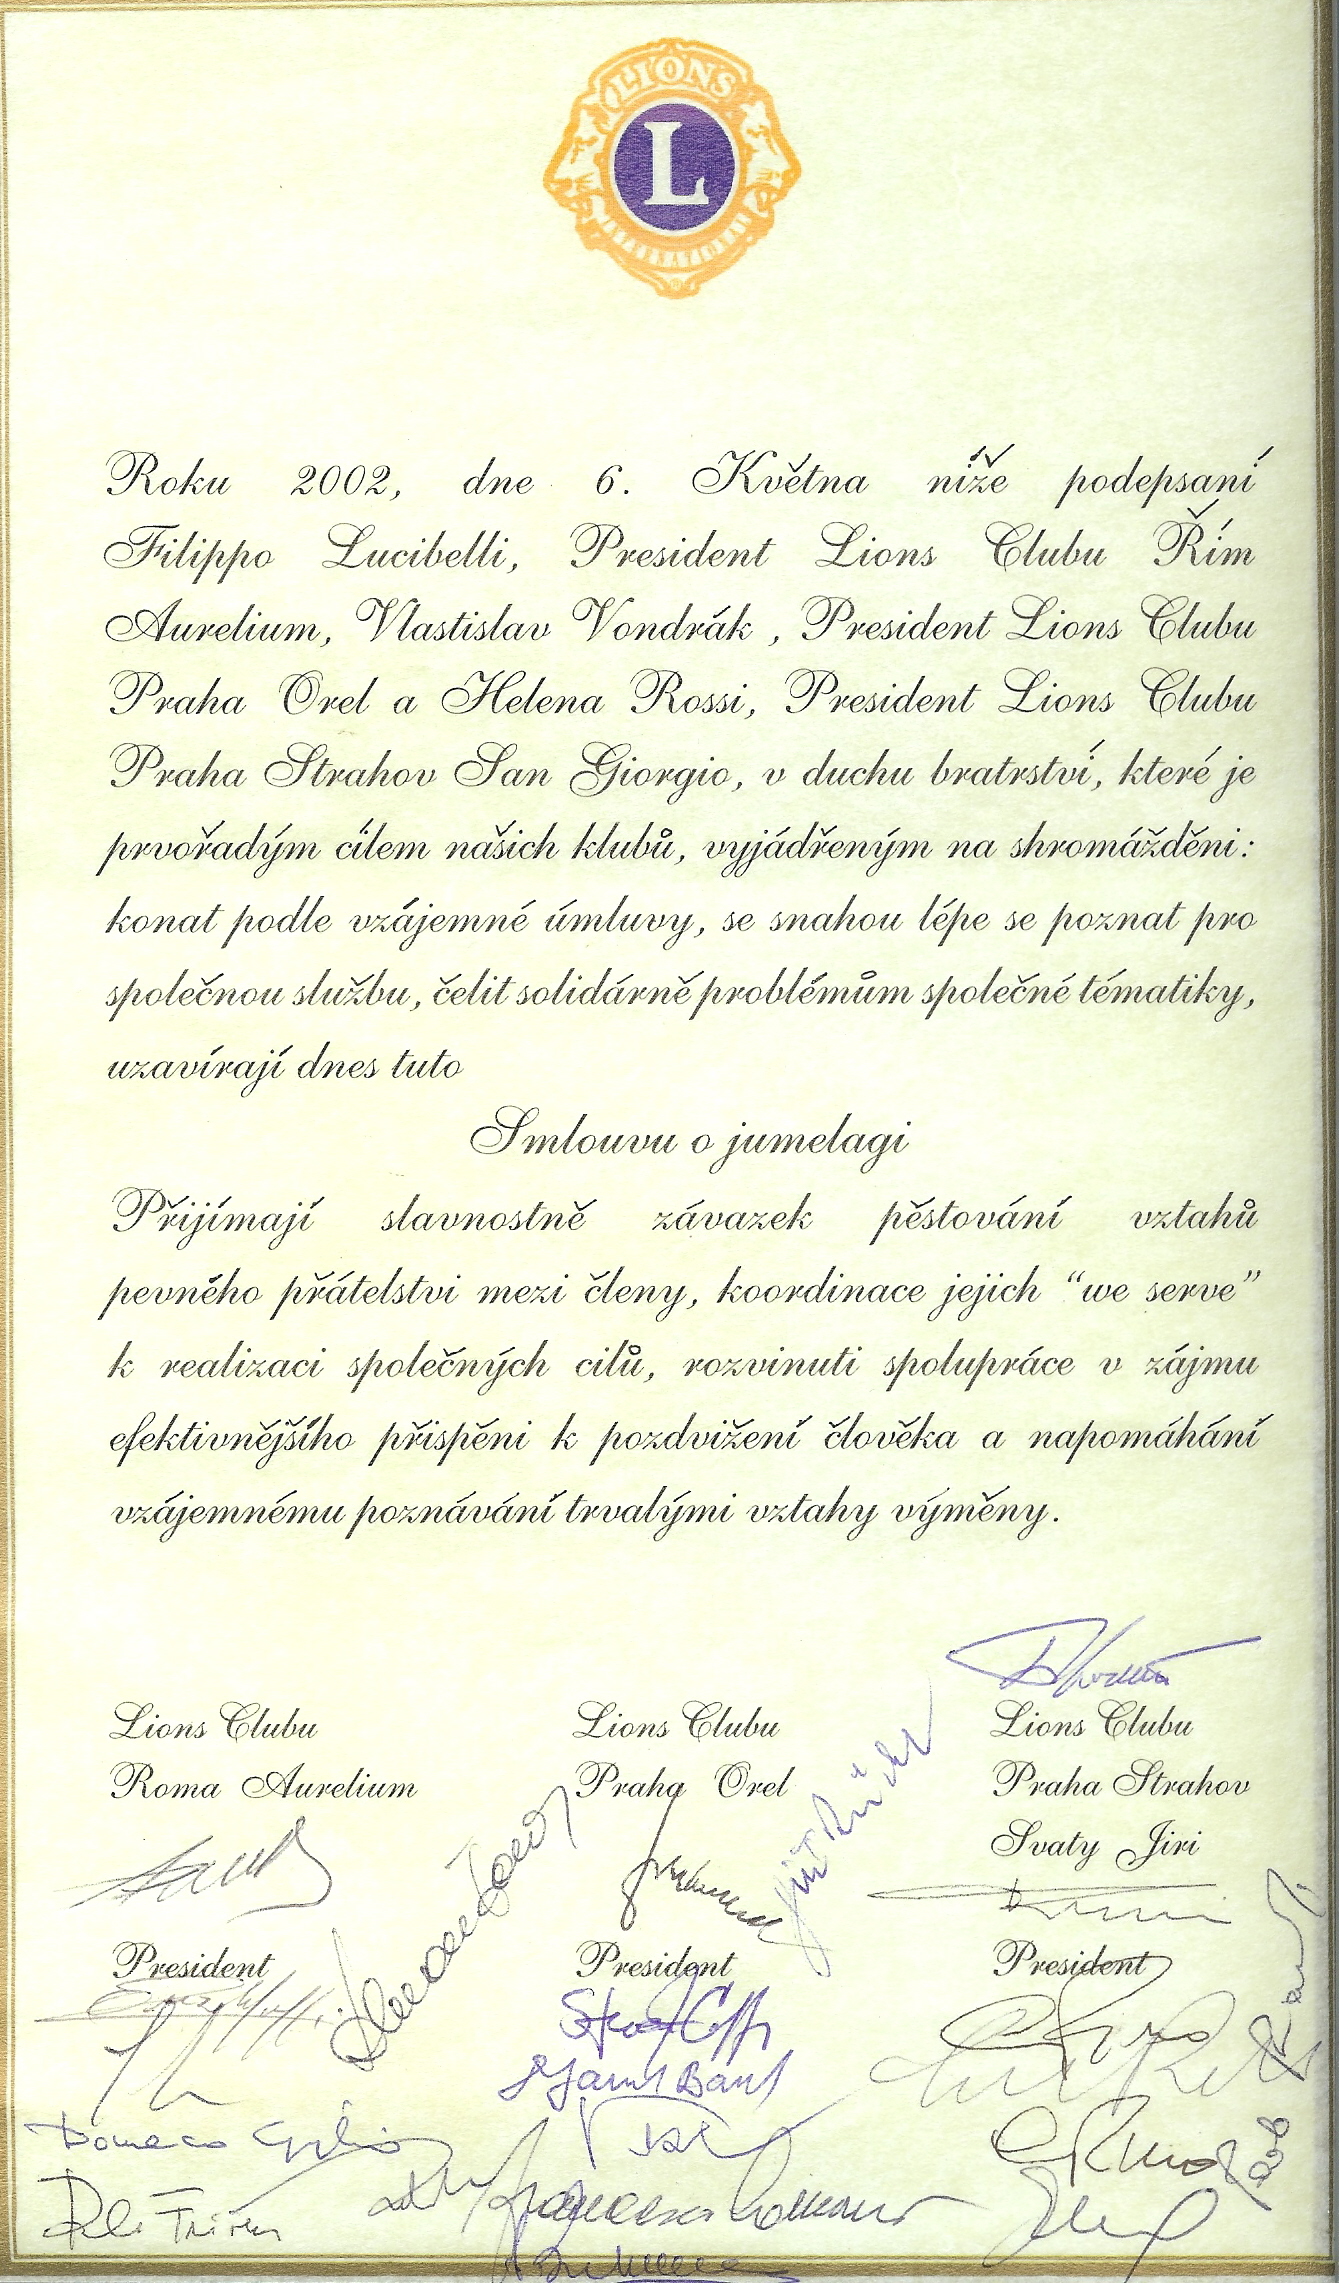 LIONS
L
INTERNATIONAL
Roku 2002, dne 6. Května níže podepsaní
Filippo Lucibelli, President Lions Clubu Řím
Aurelium, Vlastislav Vondrák , President Lions Clubu
Praha Orel a Helena Rossi, President Lions Clubu
Praha Strahov San Giorgio, v duchu bratrství, které je
prvořadým cílem našich klubů, vyjádřeným na shromážděni:
konat podle vzájemné úmluvy, se snahou lépe se poznat pro
společnou službu, čelit solidárně problémům společné tématiky,
uzavírají dnes tuto
Smlouvu o jumelagi
Přijímají slavnostně závazek pěstování vztahů
pevného přátelstvi mezi členy, koordinace jejich “we serve”
k realizaci společných cilů, rozvinuti spolupráce v zájmu
efektivnějšího přispěni k pozdvižení člověka a napomáhání
vzájemnému poznávání trvalými vztahy výměny.
Lions Clubu
Roma Aurelium
President
Lions Clubu
Praha Orel
President
Lions Clubu
Praha Strahov
Svaty Jiri
President